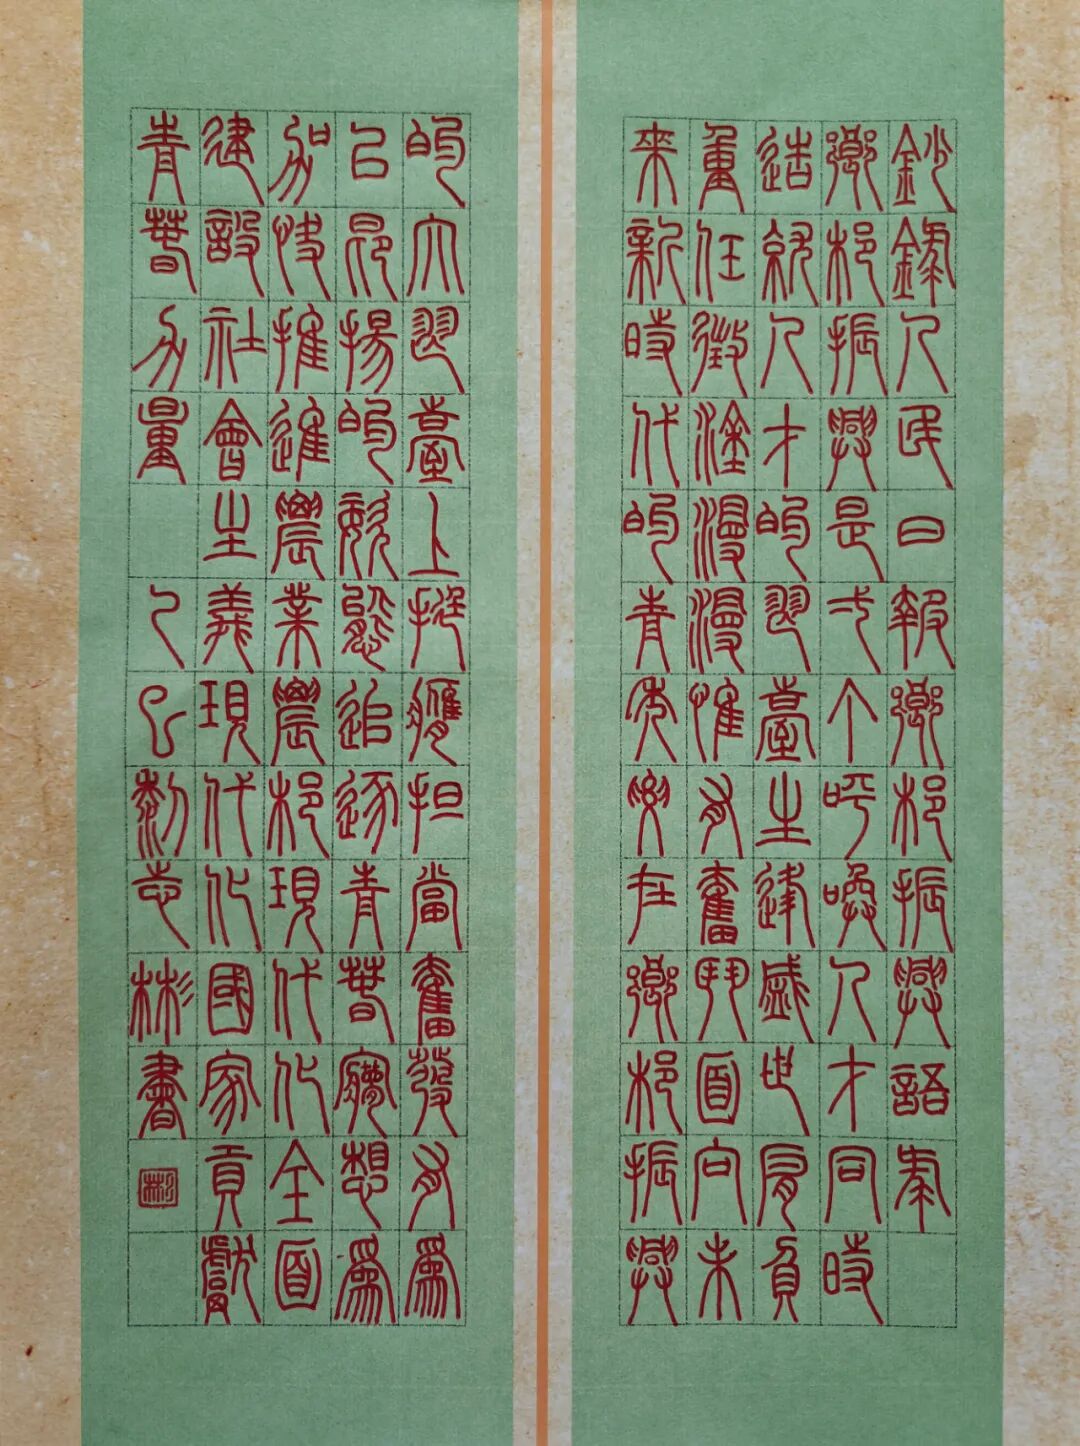 鈔錄人民日報鄉邨振興語奉
鄉邨振興是弌个呼喚人才同時
造就人才的舞臺生逢盛世肩負
重任徵途漫漫惟有奮鬥面向未
來新時代的青年要在鄉邨振興
的大舞臺上挺膺担當奮發有為
以昂揚的姿態追逐青春夢想為
加快推進農業農邨現代化全面
建設社會主義現代化國家貢獻
青春力量 乙巳黎志彬書
彬